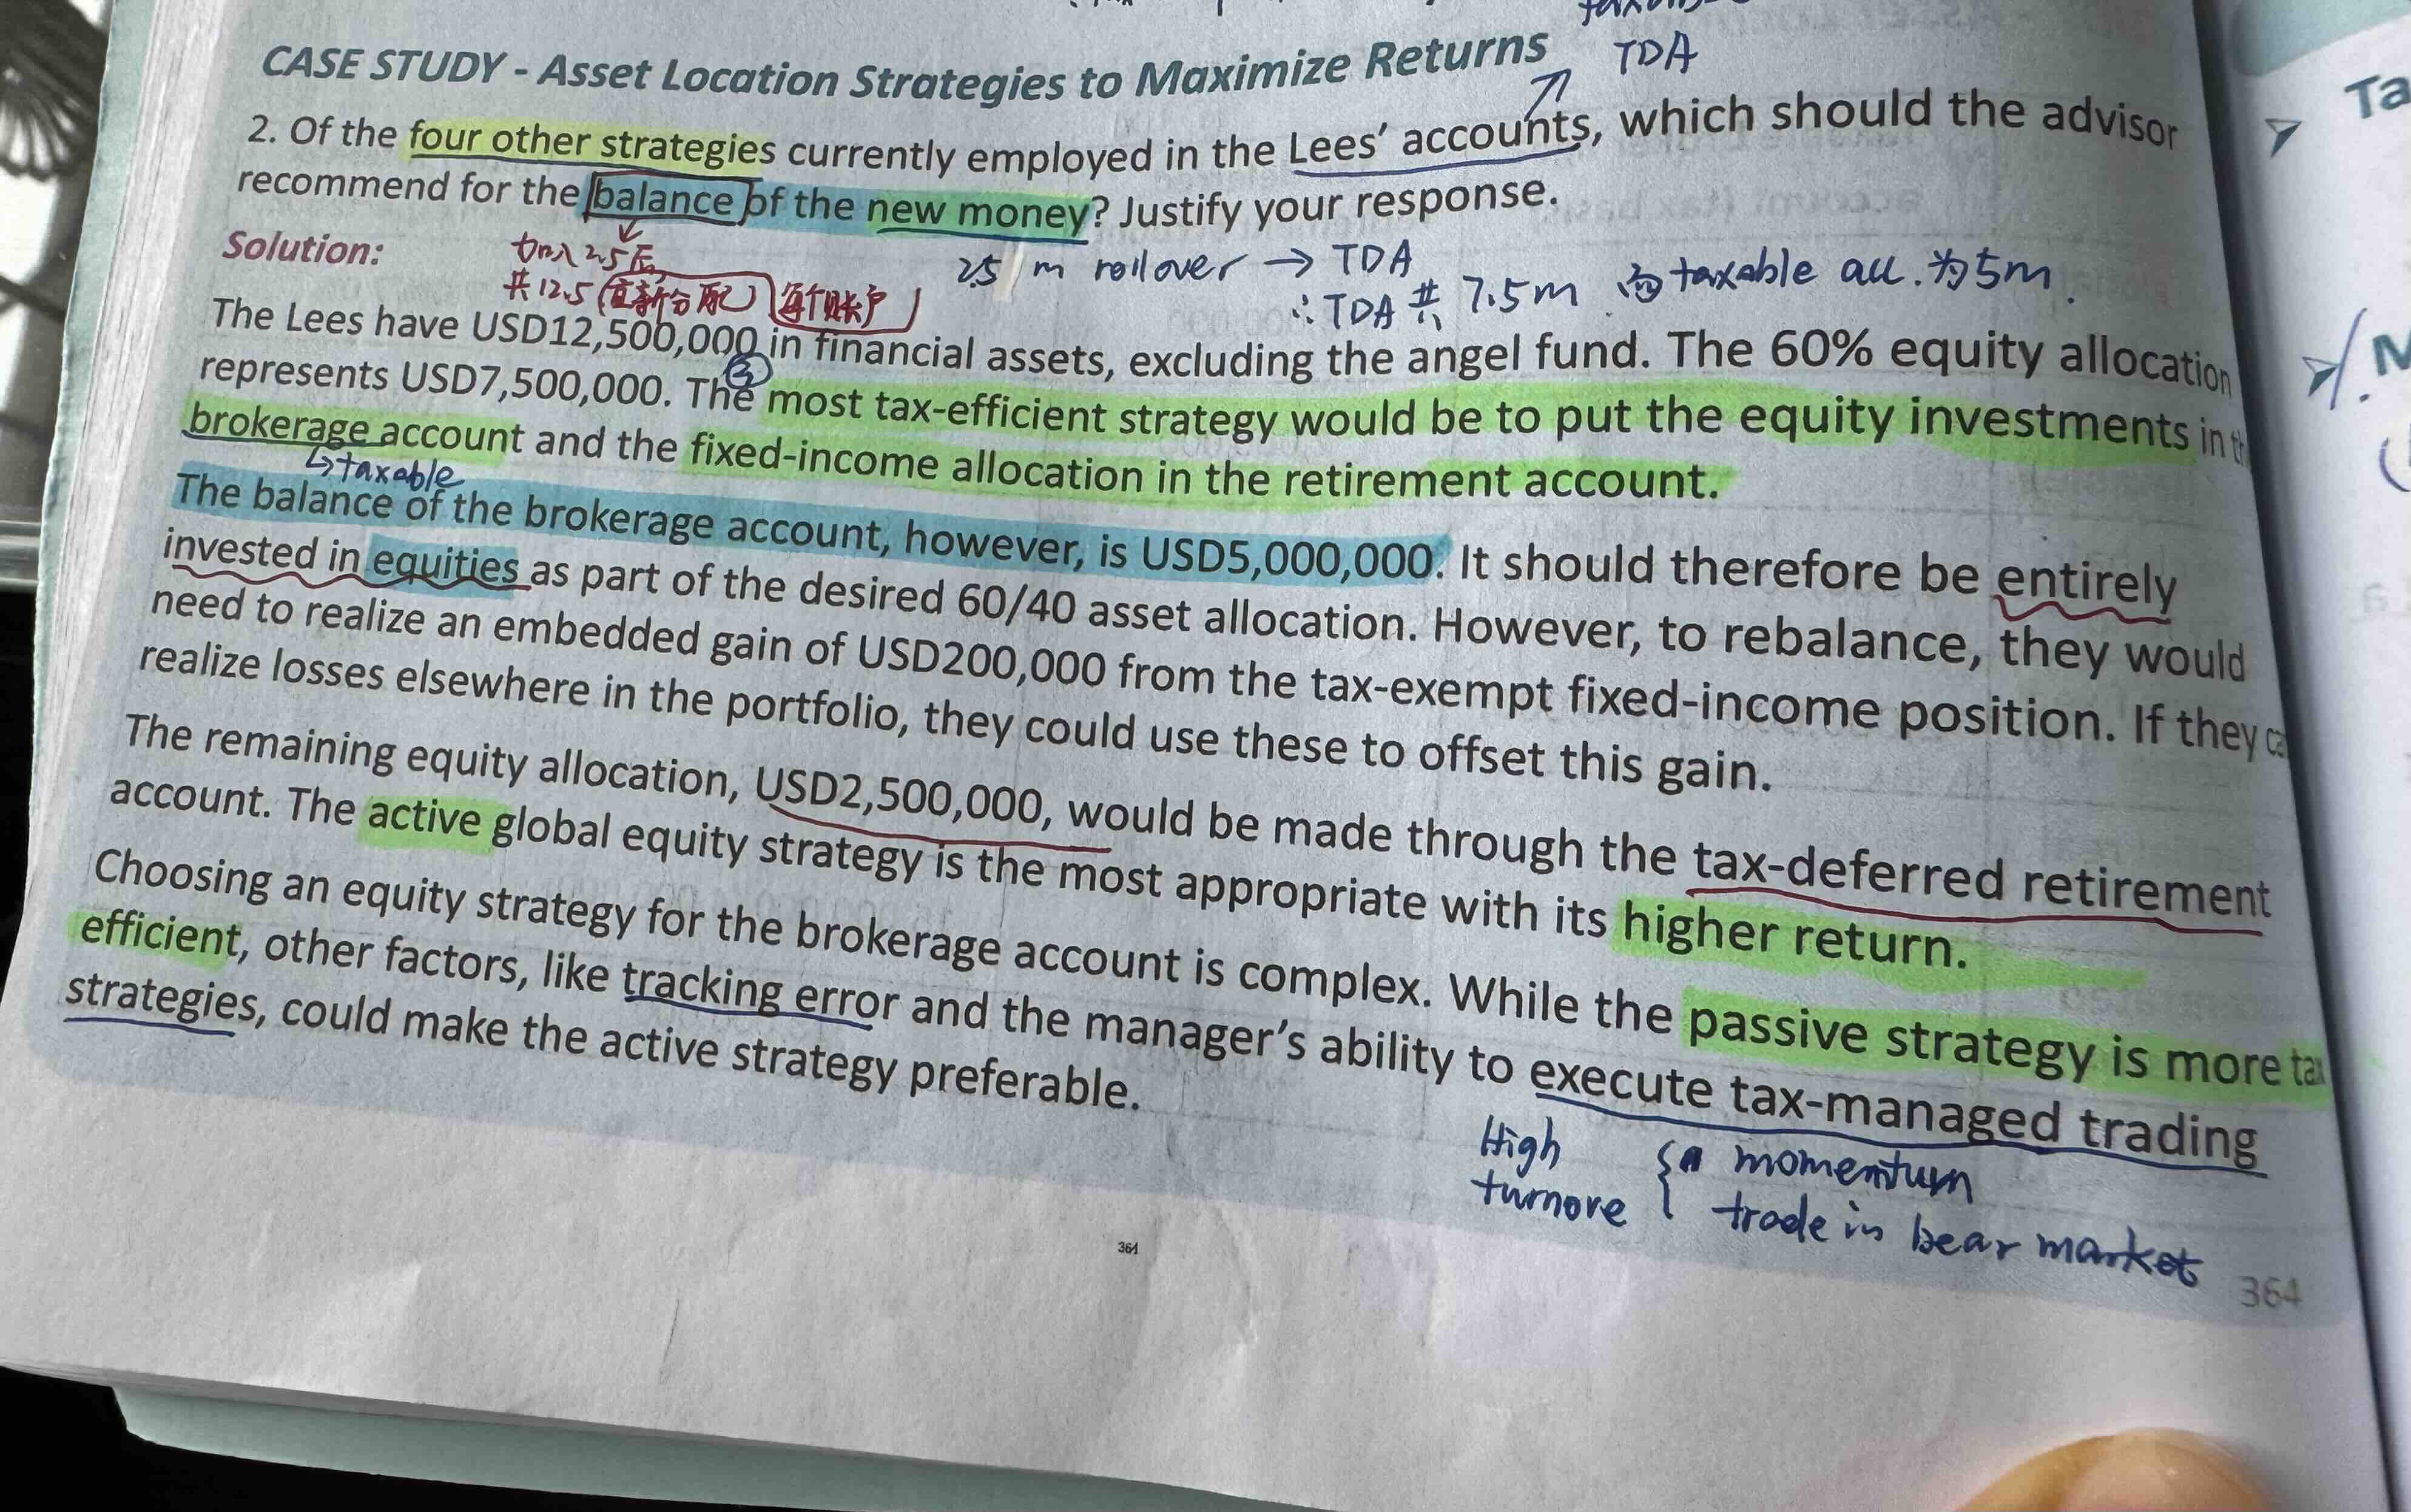 TDA
CASE STUDY - Asset Location Strategies to Maximize Returns
2. Of the four other strategies currently employed in the Lees' accounts, which should the advisor
recommend for the balance of the new money? Justify your response.
Solution:
加入2.5后
共12.5(重新分配)每个账户
2.5 m rollover → TDA
∴ TDA共 7.5m taxable acc.为5m.
The Lees have USD12,500,000 in financial assets, excluding the angel fund. The 60% equity allocation
represents USD7,500,000. The most tax-efficient strategy would be to put the equity investments in
brokerage account and the fixed-income allocation in the retirement account.
↳taxable
The balance of the brokerage account, however, is USD5,000,000. It should therefore be entirely
invested in equities as part of the desired 60/40 asset allocation. However, to rebalance, they would
need to realize an embedded gain of USD200,000 from the tax-exempt fixed-income position. If they
realize losses elsewhere in the portfolio, they could use these to offset this gain.
The remaining equity allocation, USD2,500,000, would be made through the tax-deferred retirement
account. The active global equity strategy is the most appropriate with its higher return.
Choosing an equity strategy for the brokerage account is complex. While the passive strategy is more
efficient, other factors, like tracking error and the manager's ability to execute tax-managed trading
strategies, could make the active strategy preferable.
High
turnore
momentum
trade in bear market
364
364
Ta